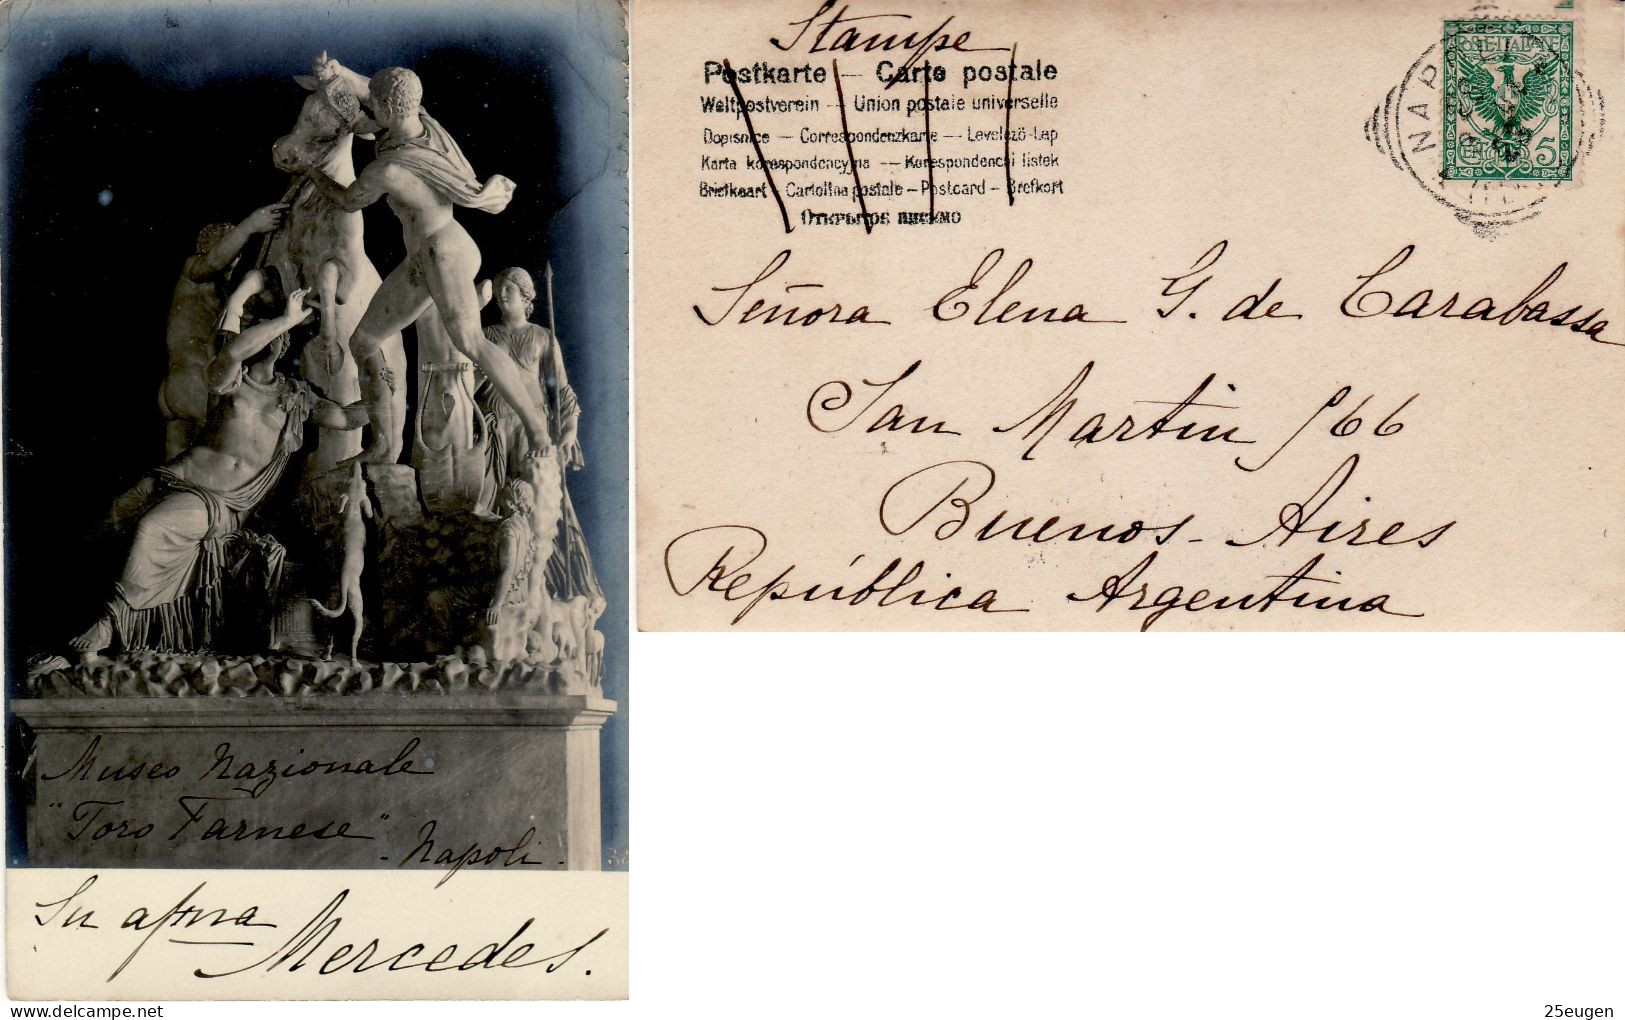 Museo Nazionale
"Toro Farnese"
- Napoli -
Su afma
Mercedes.
Stampe
Postkarte — Carte postale
Weltpostverein — Union postale universelle
Dopisnice — Correspondenzkarte — Levelező-Lap
Karta korespondencyjna — Korespondenchi listek
Briefkaart — Cartolina postale — Postcard — Brefkort
Открытое письмо
NAP
POSTE·ITALIANE
CEN 5
Señora Elena G. de Carabassa
San Martin 566
Buenos - Aires
República Argentina
25eugen